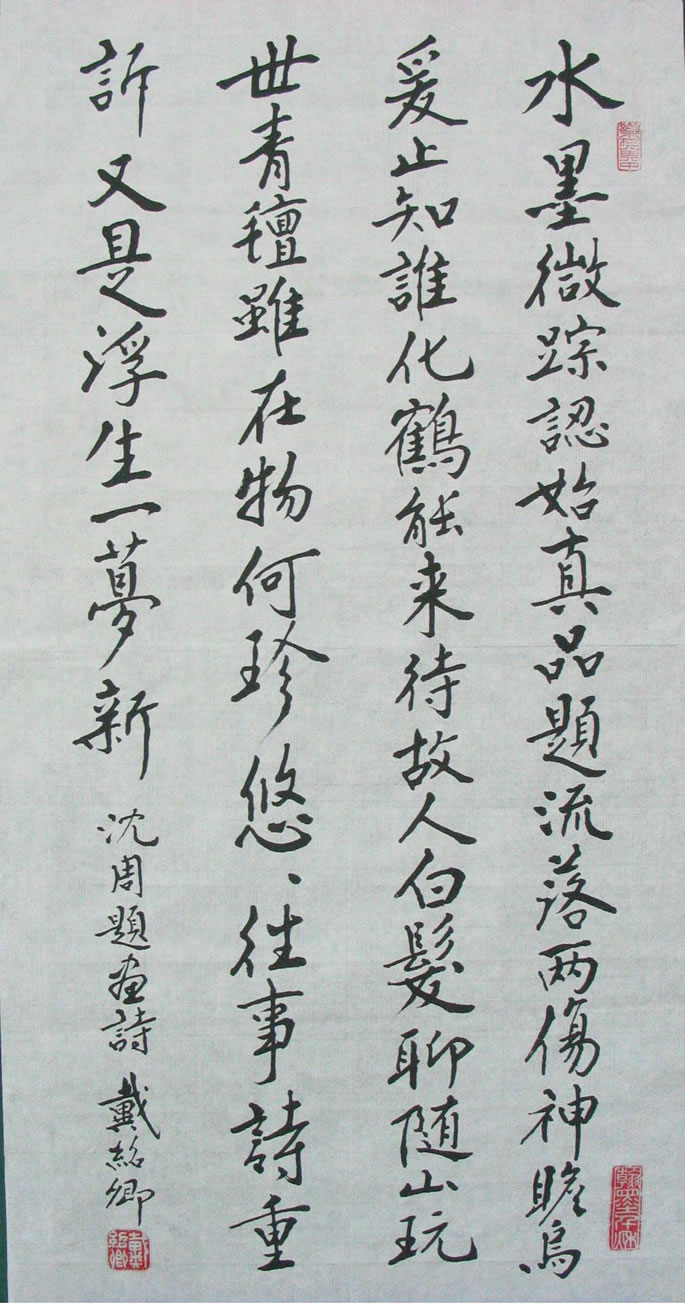 水墨微踪認始真品題流落两傷神瞻烏
爰止知誰化鶴能来待故人白髮聊随山玩
世青氊雖在物何珍悠、往事詩重
訴又是浮生一夢新 沈周題画詩 戴紹卿
翰墨千秋
戴紹卿